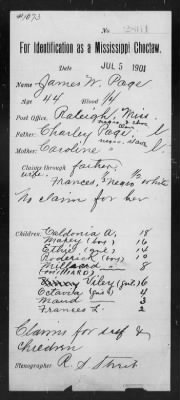 #1073
No.
For Identification as a Mississippi Choctaw.
Date JUL 5 1901
Name James W. Page
Age 44 Blood 1/4
Post Office, Raleigh, Miss.
Father: Charley Page,
negro slave
Mother: Caroline "
Claims through father,
wife: Frances, 1/2 Negro 1/2 white
No claim for her
Children: Caldonia A. 18
Maxey (boy) 16
Ethel (girl) 14
Roderick (boy) 10
Millard 8
Viley (girl) 6
Octavia (girl) 4
Maud 3
Frances L. 2
Claims for self &
children
Stenographer R. S. Streit